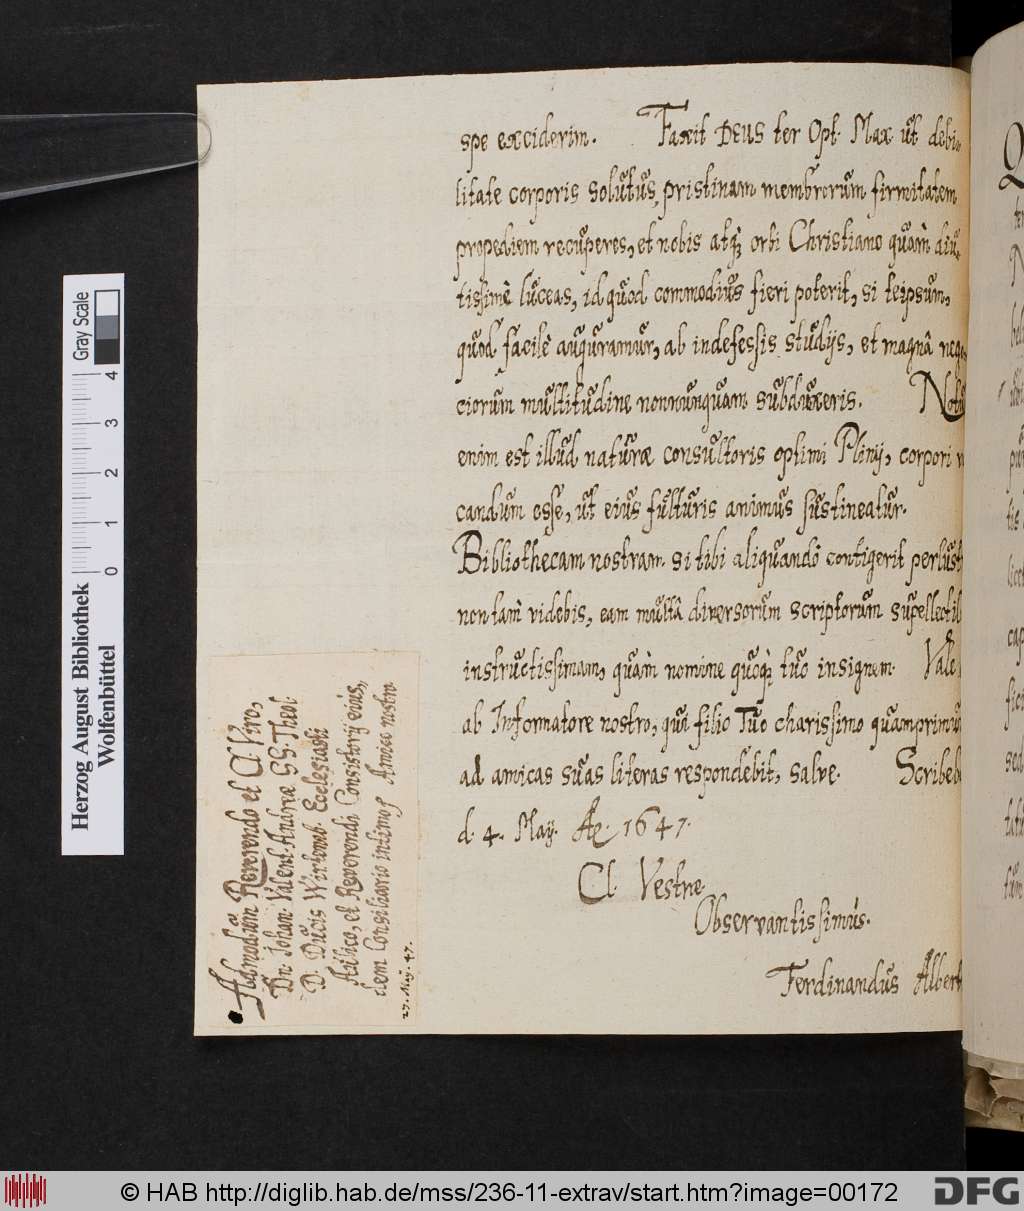 spe exciderim. Faxit DEUS ter Opt. Max ut debi
litate corporis solutus, pristinam membrorum firmitatem
propediem recuperes, et nobis atq; orbi Christiano quàm diu-
tissimè luceas, id quod commodius fieri poterit, si teipsum,
quod facilè auguramur, ab indefessis studijs, et magnâ nego
ciorum multitudine nonnunquam subduxeris. Notu
enim est illud naturæ consultoris optimi Plinij, corpori
candum esse, ut eius fulturis animus sustineatur.
Bibliothecam nostram si tibi aliquando contigerit perlust
non tam videbis, eam multâ diversorum scriptorum supellectil
instructissimam, quàm nomine quoq; tuo insignem. Vale
ab Informatore nostro, qui filio Tuo charissimo quamprimum
ad amicas suas literas respondebit, salve. Scribeb
d. 4. May. Aº. 1647.
Cl. Vestræ
Observantissimus.
Ferdinandus Albert
Admodum Reverendo et Cl Viro,
Dn. Johan: Valent. Andreæ SS. Theol:
D. Ducis Wirtemb. Ecclesiasti
Aulico, et Reverendi Consistorij eius,
dem Consiliario intimo, Amico nostro.
27. May. 47.
Herzog August Bibliothek
Wolfenbüttel
Gray Scale
0 1 2 3 4
© HAB http://diglib.hab.de/mss/236-11-extrav/start.htm?image=00172
DFG